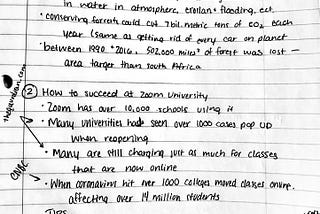 in water in atmosphere, erosion + flooding, ect.
• conserving forests could cut 7 bil. metric tons of CO₂ each
year (same as getting rid of every car on planet
• between 1990 + 2016, 502,000 miles² of forest was lost —
area larger than South Africa
② How to succeed at Zoom University
• Zoom has over 10,000 schools using it
• Many universities had seen over 1000 cases pop up
when reopening
• Many are still charging just as much for classes
that are now online
• When coronavirus hit over 1000 colleges moved classes online,
affecting over 14 million students
Tips
theguardian.com
CNBC